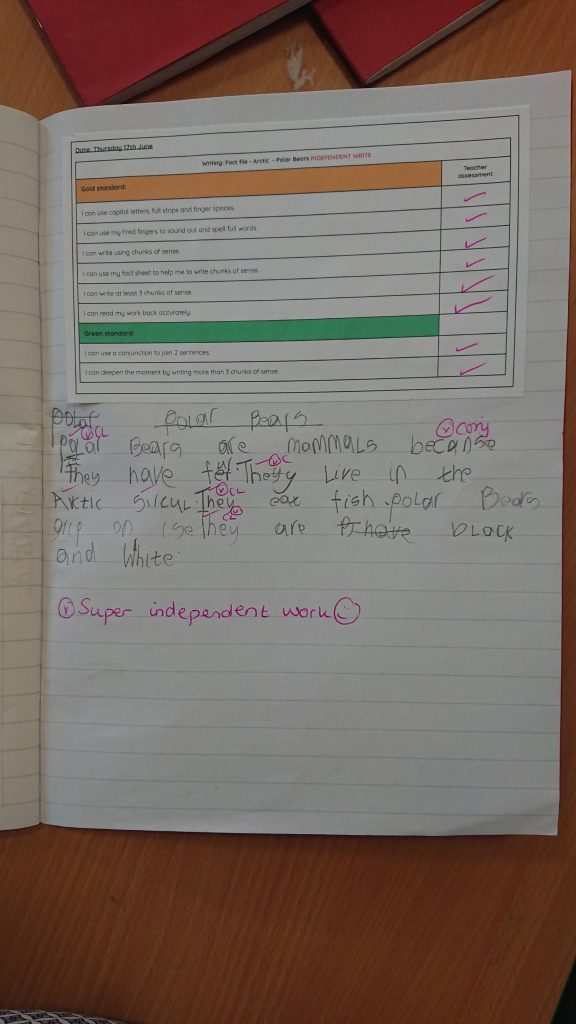 Date: Thursday 17th June
Writing: Fact file - Arctic - Polar Bears INDEPENDENT WRITE
Gold standard:
Teacher assessment
I can use capital letters, full stops and finger spaces.
I can use my Fred fingers to sound out and spell full words.
I can write using chunks of sense.
I can use my fact sheet to help me to write chunks of sense.
I can write at least 3 chunks of sense.
I can read my work back accurately.
Green standard:
I can use a conjunction to join 2 sentences.
I can deepen the moment by writing more than 3 chunks of sense.
Polar Polar Bears
V CL V conj
Polar Bears are mammals because
V C
They have fer They Live in the
V CL
Arctic Sircul They eat fish .polar Bears
CL V
on ise. They are have black
and White.
V Super independent work